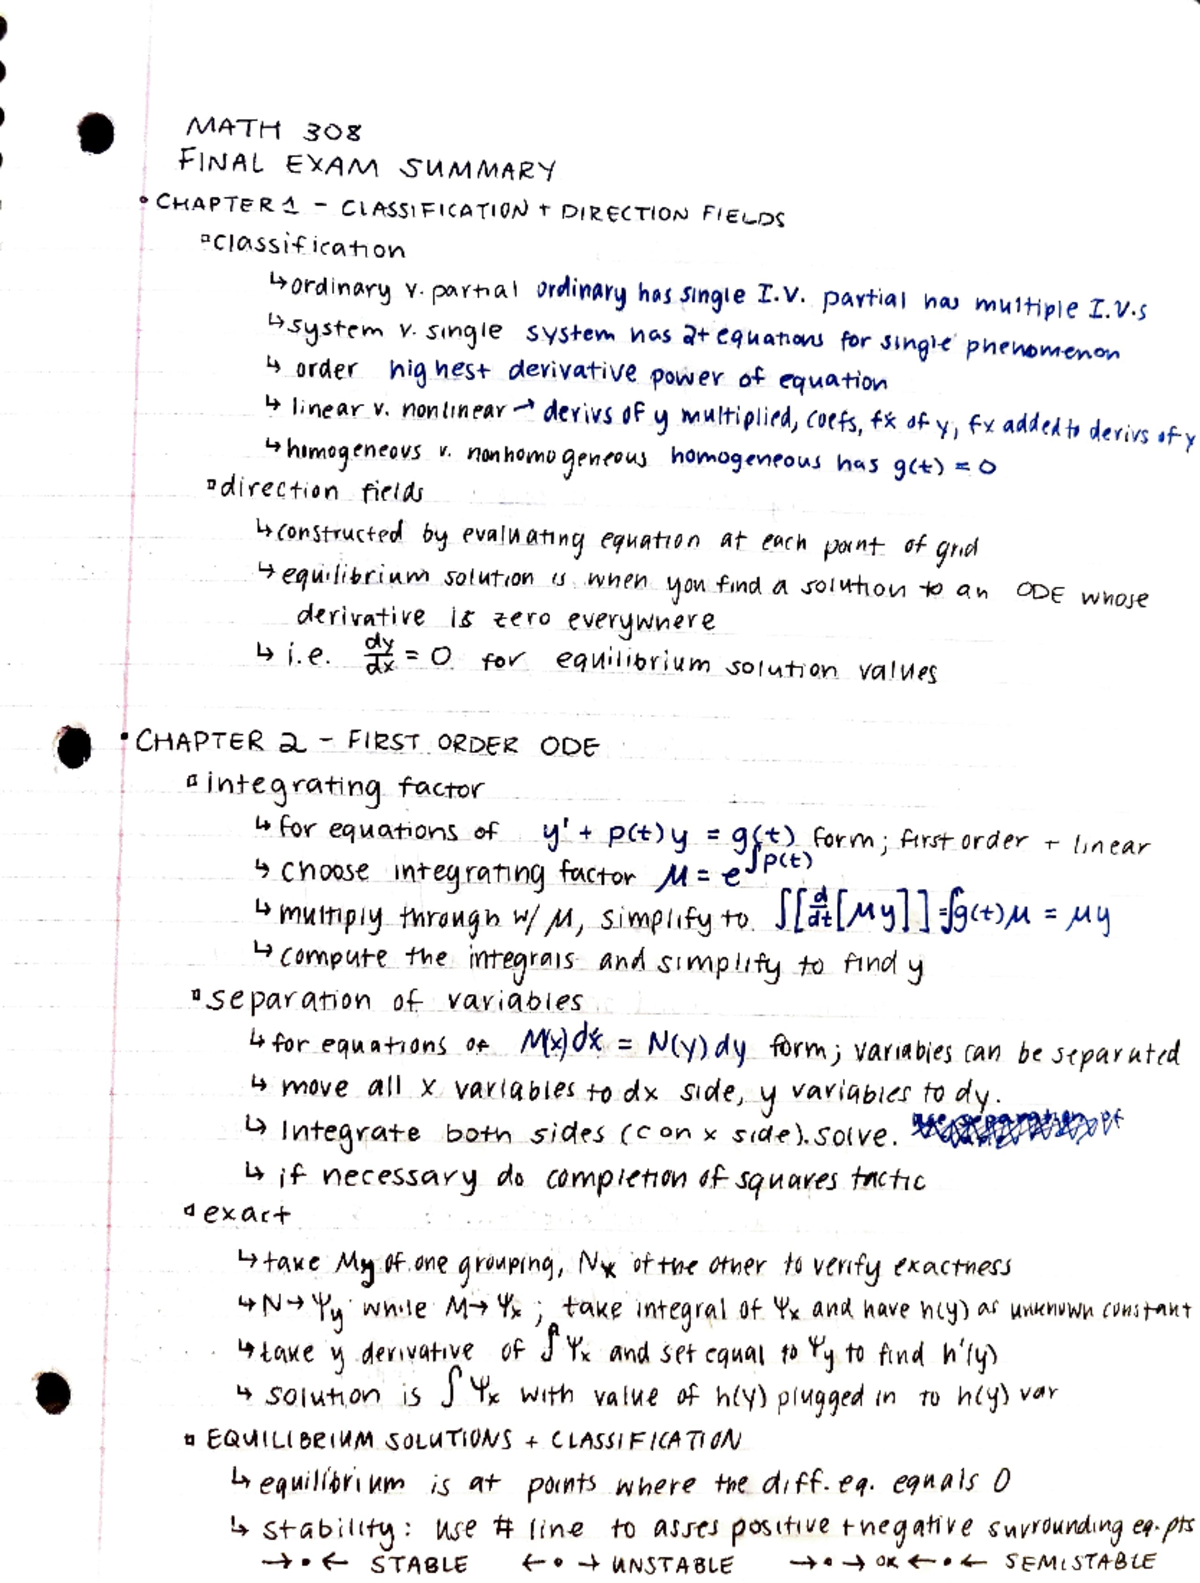 MATH 308
FINAL EXAM SUMMARY
• CHAPTER 1 - CLASSIFICATION + DIRECTION FIELDS
▫ classification
↳ ordinary v. partial ordinary has single I.V. partial has multiple I.V.s
↳ system v. single system has 2+ equations for single phenomenon
↳ order highest derivative power of equation
↳ linear v. nonlinear → derivs of y multiplied, coefs, fx of y, fx added to derivs of y
↳ homogeneous v. nonhomogeneous homogeneous has g(t) = 0
▫ direction fields
↳ constructed by evaluating equation at each point of grid
↳ equilibrium solution is when you find a solution to an ODE whose
derivative is zero everywhere
↳ i.e. dy/dx = 0 for equilibrium solution values
• CHAPTER 2 - FIRST ORDER ODE
▫ integrating factor
↳ for equations of y' + p(t)y = g(t) form; first order + linear
↳ choose integrating factor μ = e^∫p(t)
↳ multiply through w/ μ, simplify to ∫[d/dt[μy]] = ∫g(t)μ = μy
↳ compute the integrals and simplify to find y
▫ separation of variables
↳ for equations of M(x)dx = N(y)dy form; variables can be separated
↳ move all x variables to dx side, y variables to dy.
↳ Integrate both sides (c on x side). solve.
↳ if necessary do completion of squares tactic
▫ exact
↳ take My of one grouping, Nx of the other to verify exactness
↳ N→Ψy while M→Ψx ; take integral of Ψx and have h(y) as unknown constant
↳ take y derivative of ∫Ψx and set equal to Ψy to find h'(y)
↳ solution is ∫Ψx with value of h(y) plugged in to h(y) var
▫ EQUILIBRIUM SOLUTIONS + CLASSIFICATION
↳ equilibrium is at points where the diff. eq. equals 0
↳ stability: use # line to asses positive + negative surrounding eq. pts
→•← STABLE ←•→ UNSTABLE →•→ OR ←•← SEMISTABLE